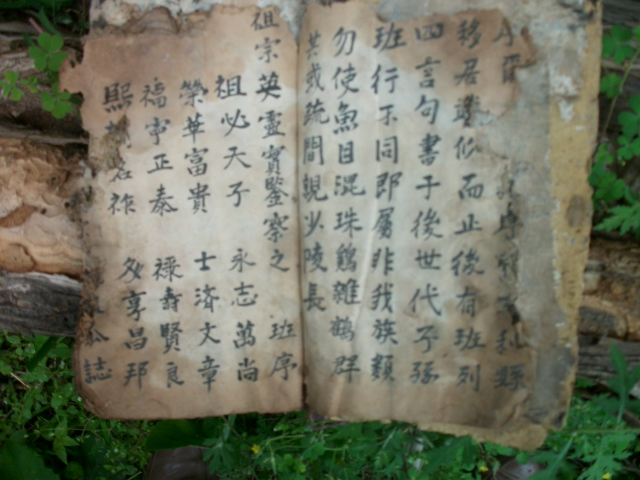 縣
移居遷似而止後有班列
四言句書于後世代子孫
班行不同即屬非我族類
勿使魚目混珠鷄雜鶴群
其或疏間親少陵長
祖宗英靈實鑒察之 班序
祖必天子 永志萬尚
榮華富貴 士濟文章
福寧正泰 祿壽賢良
熙名祚 多享昌邦
誌